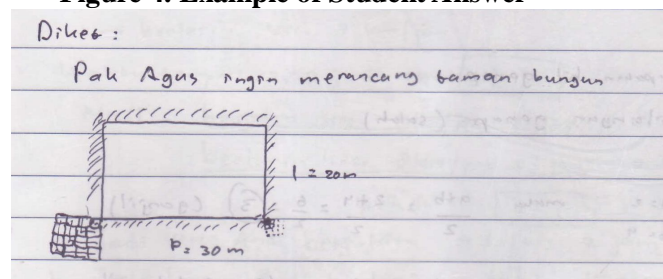 Figure 4. Example of Student Answer
Dikes :
Pak Agus ingin merancang taman bunga
l = 20 m
P = 30 m